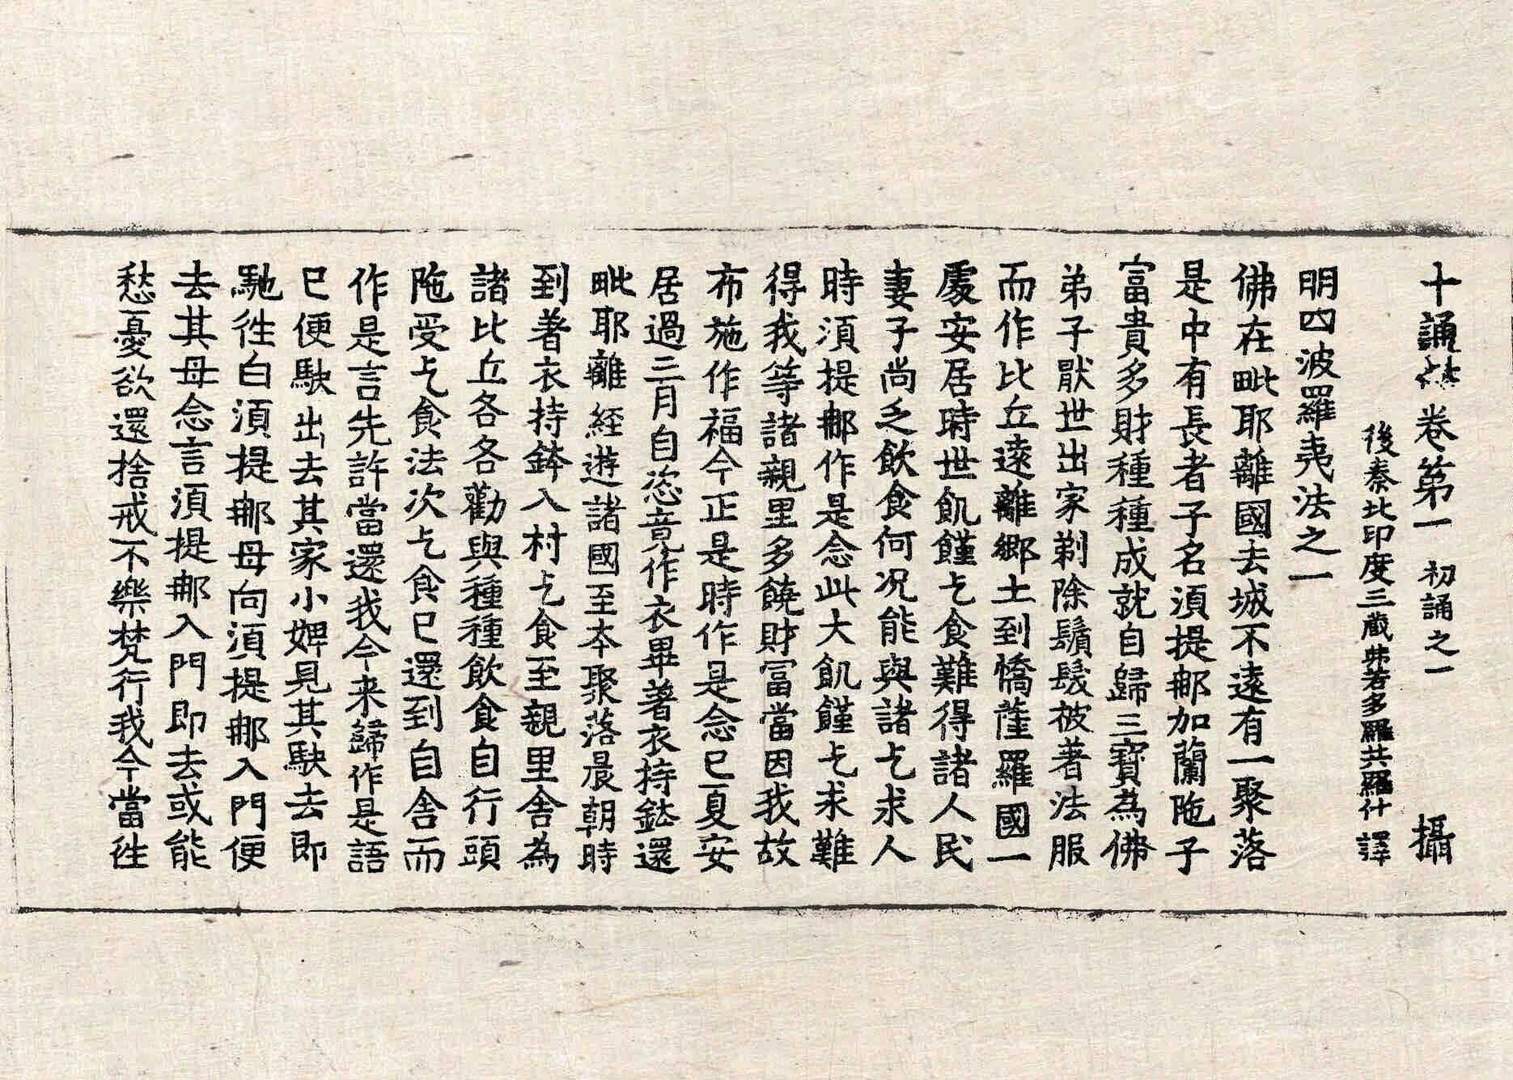 十誦律卷第一 初誦之一 攝
後秦北印度三藏弗若多羅共羅什譯
明四波羅夷法之一
佛在毗耶離國去城不遠有一聚落
是中有長者子名須提那加蘭陁子
富貴多財種種成就自歸三寶為佛
弟子猒世出家剃除鬚髮被著法服
而作比丘遠離鄉土到憍薩羅國一
處安居時世飢饉乞食難得諸人民
妻子尚乏飲食何况能與諸乞求人
時須提那作是念此大飢饉乞求難
得我等諸親里多饒財富當因我故
布施作福今正是時作是念已夏安
居過三月自恣竟作衣畢著衣持鉢還
毗耶離經遊諸國至本聚落晨朝時
到著衣持鉢入村乞食至親里舍為
諸比丘各各勸與種種飲食自行頭
陁受乞食法次乞食已還到自舍而
作是言先許當還我今来歸作是語
已便駃出去其家小婢見其駃去即
馳徃白須提那母向須提那入門便
去其母念言須提那入門即去或能
愁憂欲還捨戒不樂梵行我今當徃